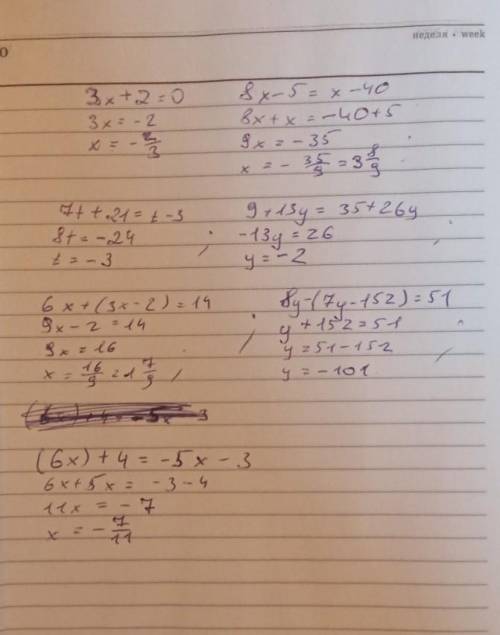 неделя • week
0
3x+2=0
3x=-2
x=-2/3
8x-5=x-40
8x+x=-40+5
9x=-35
x=-35/9=3 8/9
7t+21=t-3
8t=-24
t=-3
;
9+13y=35+26y
-13y=26
y=-2
;
6x+(3x-2)=14
9x-2=14
9x=16
x=16/9=1 7/9
;
8y-(7y-152)=51
y+152=51
y=51-152
y=-101
(6x)+4=-5x-3
6x+5x=-3-4
11x=-7
x=-7/11